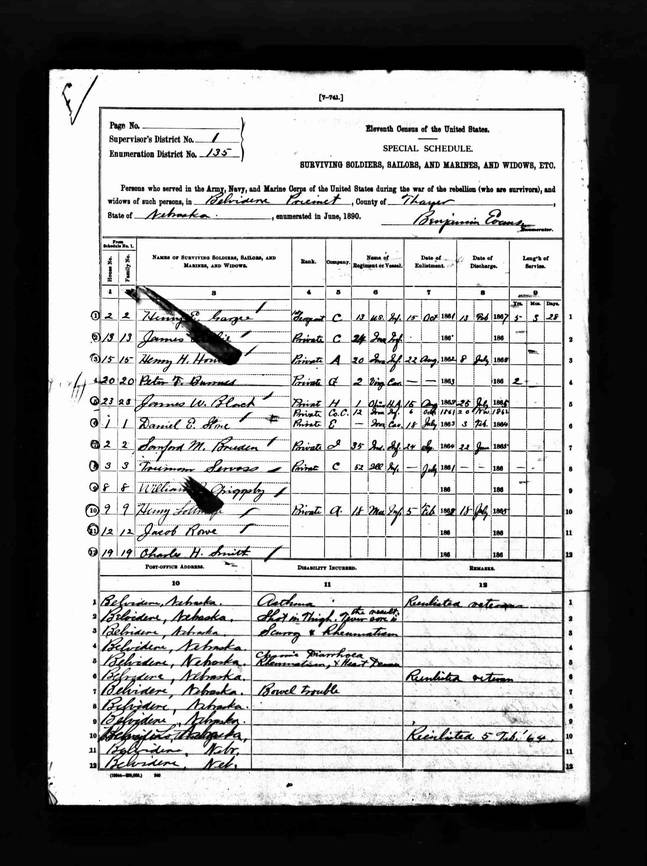 [7-741.]
Page No.
Supervisor's District No. 1
Enumeration District No. 135
Eleventh Census of the United States.
SPECIAL SCHEDULE.
SURVIVING SOLDIERS, SAILORS, AND MARINES, AND WIDOWS, ETC.
Persons who served in the Army, Navy, and Marine Corps of the United States during the war of the rebellion (who are survivors), and
widows of such persons, in Belvidere Precinct, County of Thayer,
State of Nebraska, enumerated in June, 1890. Benjamin Evans
Enumerator.
From Schedule No. 1.
House No. Family No. NAMES OF SURVIVING SOLDIERS, SAILORS, AND MARINES, AND WIDOWS. Rank. Company. Name of Regiment or Vessel. Date of Enlistment. Date of Discharge. Length of Service.
1 2 3 4 5 6 7 8 9
Yrs. Mos. Days.
1 2 2 Henry E. Sergeant C 13 U.S. Inf. 15 Oct 1861 13 Feb 1867 5 3 28 1
2 13 13 James Private C Inf. 186 186 2
3 15 15 Henry H. Private A 20 Inf 22 Aug. 1862 8 July 186 3
4 20 20 Peter Private G 2 Cav. — — 186 2 4
5 23 23 James W. Black Privat H 1 15 Aug 1863 25 July 186 5
Private Co. C. 12 Inf. 6 1861
6 1 1 Daniel E. Private E — Cav. 18 July 1863 3 Feb. 1864 6
7 2 2 Sanford M. Private I 35 Inf. 24 1864 22 Jun 1865 7
8 3 3 Servoss Private C 52 Ill Inf. — July 1861 — — 186 8
9 8 8 William Griggsby 186 186 9
10 9 9 Henry Private A 18 Inf 5 Feb 186 18 July 1865 10
11 12 12 Jacob Rowe 186 186 11
12 19 19 Charles H. Smith 186 186 12
POST-OFFICE ADDRESS. DISABILITY INCURRED. REMARKS.
10 11 12
1 Belvidere, Nebraska. Asthma Reenlisted veteran 1
2 Belvidere, Nebraska. Shot in Thigh. 2
3 Belvidere, Nebraska. Scurvy & Rheumatism 3
4 Belvidere, Nebraska. 4
Chronic Diarrhoea
5 Belvidere, Nebraska. Rheumatism, & Heart Disease 5
6 Belvidere, Nebraska. Reenlisted veteran 6
7 Belvidere, Nebraska. Bowel trouble 7
8 Belvidere, Nebraska. 8
9 Belvidere, Nebraska. 9
10 Belvidere, Nebraska, Reenlisted 5 Feb. '64. 10
11 Belvidere, Nebr. 11
12 Belvidere, Neb. 12